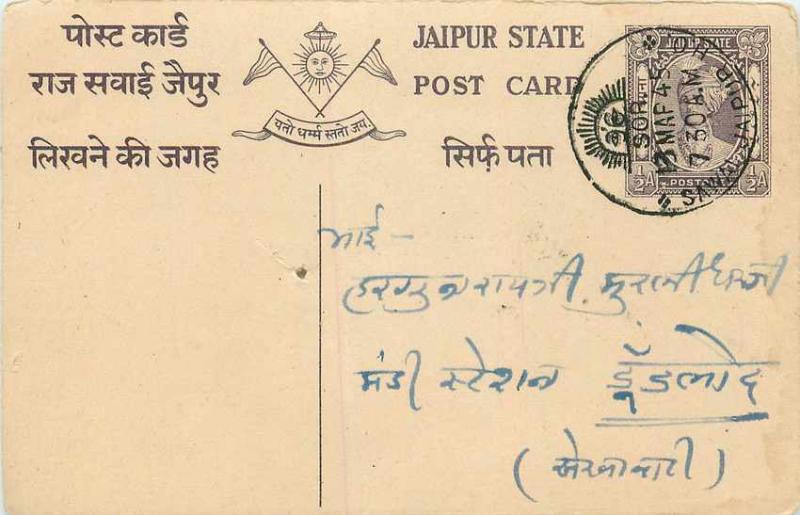 पोस्ट कार्ड
राज सवाई जैपुर
लिखने की जगह
यतो धर्म्म स्ततो जय.
JAIPUR STATE
POST CARD
सिर्फ़ पता
JAIPUR STATE
½A POSTAGE ½A
SAWAI JAIPUR
SOR.
MAR 45
7 30 A.M
भाई -
हरमुखरायजी मुरलीधरजी
मंडी स्टेशन डूँडलोद
(सेखावाटी)